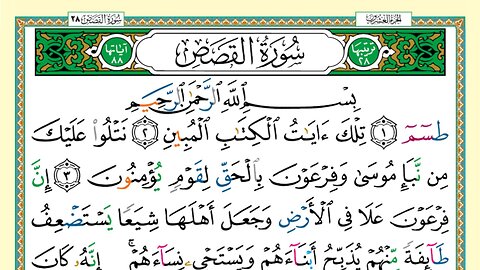 سُورَةُ القَصَصِ ٢٨ الجزء العشرون
آيَاتُهَا ٨٨ سُورَةُ القَصَصِ تَرْتِيبُهَا ٢٨
بِسْمِ ٱللَّهِ ٱلرَّحْمَٰنِ ٱلرَّحِيمِ
طسٓمٓ ١ تِلْكَ ءَايَٰتُ ٱلْكِتَٰبِ ٱلْمُبِينِ ٢ نَتْلُوا۟ عَلَيْكَ
مِن نَّبَإِ مُوسَىٰ وَفِرْعَوْنَ بِٱلْحَقِّ لِقَوْمٍ يُؤْمِنُونَ ٣ إِنَّ
فِرْعَوْنَ عَلَا فِى ٱلْأَرْضِ وَجَعَلَ أَهْلَهَا شِيَعًا يَسْتَضْعِفُ
طَآئِفَةً مِّنْهُمْ يُذَبِّحُ أَبْنَآءَهُمْ وَيَسْتَحْىِۦ نِسَآءَهُمْ ۚ إِنَّهُۥ كَانَ